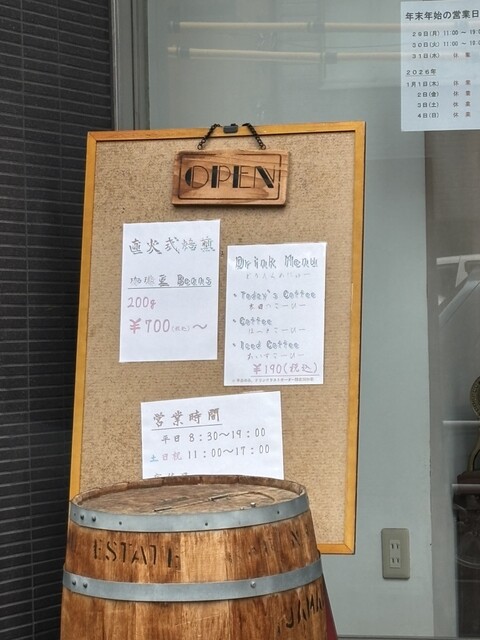 年末年始の営業日
29日(月) 11:00 ～ 19:0
30日(火) 11:00 ～ 19:0
31日(水) 休 業
2026年
1月1日(木) 休 業
2日(金) 休 業
3日(土) 休 業
4日(日) 休 業
OPEN
直火式焙煎
珈琲豆 Beans
200g
¥700(税込)～
Drink Menu
どりんくめにゅー
・Today's Coffee
本日のこーひー
・Coffee
こーひー
・Iced Coffee
あいすこーひー
¥190(税込)
営業時間
平日 8：30～19：00
土日祝 11：00～17：00
ESTATE